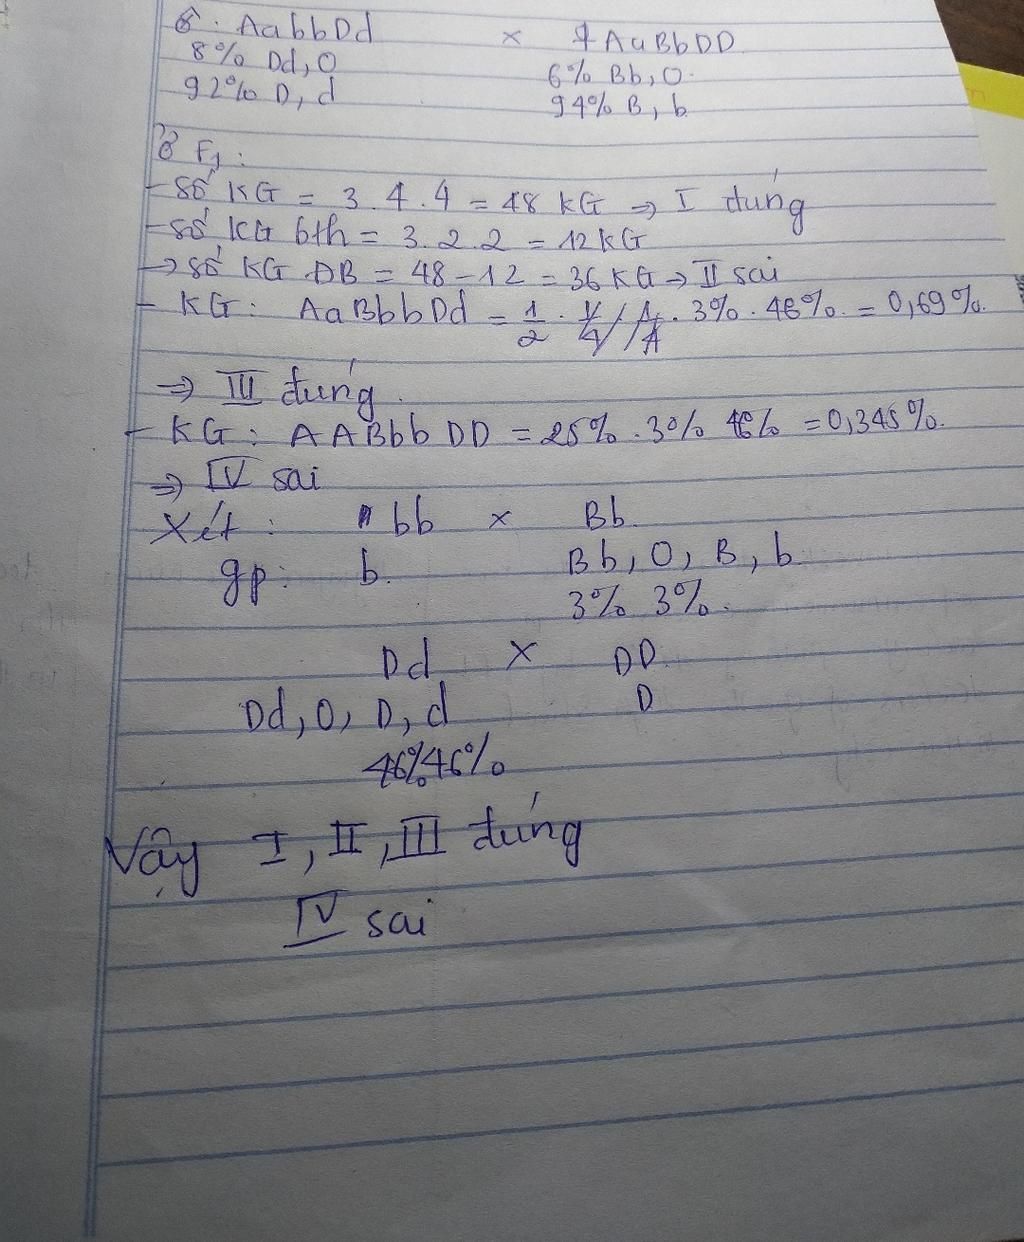 ♂: AabbDd × ♀ AaBbDD
8% Dd, O 6% Bb, O.
92% D, d 94% B, b
Ở F1:
- Số KG = 3.4.4 = 48 KG ⇒ I đúng
- số KG bth = 3.2.2 = 12 KG
→ số KG ĐB = 48 - 12 = 36 KG → II sai
- KG: AaBbbDd = 1/2 . 3% . 46% = 0,69%.
⇒ III đúng.
- KG: AABbbDD = 25% . 3% 46% = 0,345%.
⇒ IV sai
Xét: bb × Bb
gp: b. Bb, O, B, b
3% 3%.
Dd × DD
Dd, O, D, d D
46% 46%
Vậy I, II, III đúng
IV sai